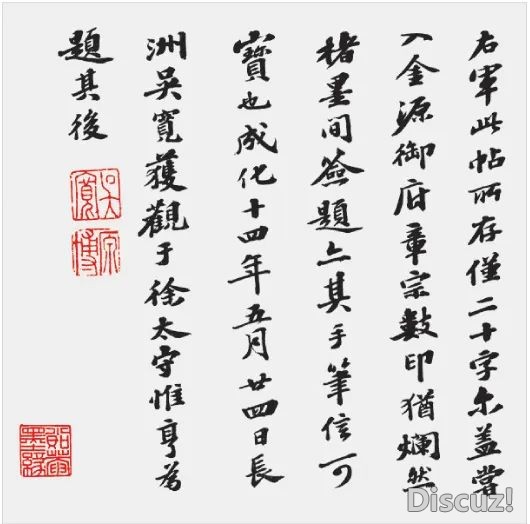 右軍此帖所存僅二十字尓盖嘗
入金源御府章宗數印猶爛然
楮墨間簽題亦其手筆信可
寶也成化十四年五月廿四日長
洲吳寬獲觀于徐太守惟亨為
題其後
吳寬
原博
Discuz!